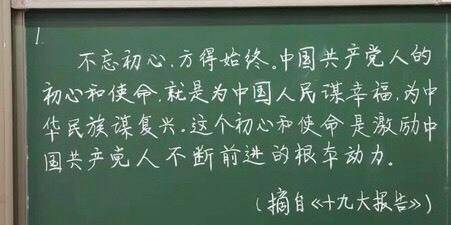 1.
不忘初心，方得始终。中国共产党人的
初心和使命，就是为中国人民谋幸福，为中
华民族谋复兴。这个初心和使命是激励中
国共产党人不断前进的根本动力。
（摘自《十九大报告》）